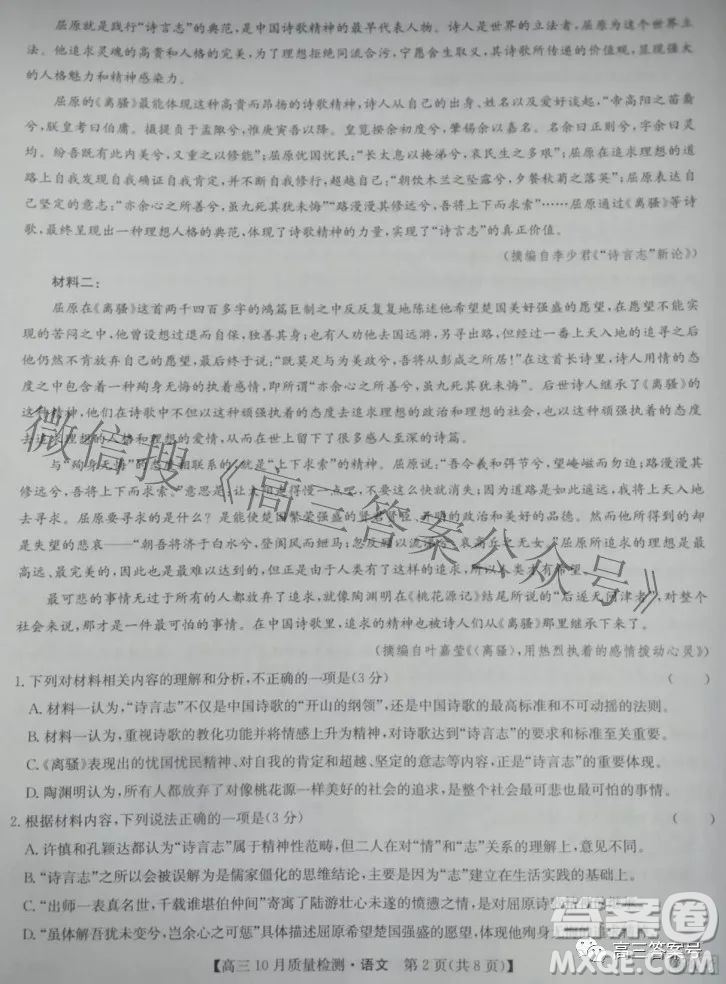 屈原就是践行“诗言志”的典范，是中国诗歌精神的最早代表人物。诗人是世界的立法者，屈原为这个世界立
法。他追求灵魂的高贵和人格的完美，为了理想拒绝同流合污，宁愿舍生取义，其诗歌所传递的价值观，显现强大
的人格魅力和精神感染力。
屈原的《离骚》最能体现这种高贵而昂扬的诗歌精神，诗人从自己的出身、姓名以及爱好谈起，“帝高阳之苗裔
兮，朕皇考曰伯庸。摄提贞于孟陬兮，惟庚寅吾以降。皇览揆余初度兮，肇锡余以嘉名。名余曰正则兮，字余曰灵
均。纷吾既有此内美兮，又重之以修能”；屈原忧国忧民；“长太息以掩涕兮，哀民生之多艰”；屈原在追求理想的道
路上自我发现自我确证自我肯定，并干预现实，超越自己；“朝饮木兰之坠露兮，夕餐秋菊之落英”；屈原表达自己
坚定的意志；“亦余心之所善兮，虽九死其犹未悔”“路漫漫其修远兮，吾将上下而求索”……屈原通过《离骚》等诗
歌，最终呈现出一种理想人格的典范，体现了诗歌精神的力量，实现了“诗言志”的真正价值。
（摘编自李少君《“诗言志”新论》）
材料二：
屈原在《离骚》这首两千四百多字的鸿篇巨制之中反反复复地陈述他希望楚国美好强盛的愿望，在愿望不能实
现的苦闷之中，他也想到了要离开，也有人劝他去国远游，另寻出路，但经过一番上天入地的追寻之后
他仍然不肯放弃自己的愿望，最后终于说：“既莫足与为美政兮，吾将从彭咸之所居！”在这首长诗里，诗人用情的态
度之中包含着一种殉身无悔的执着感情，即所谓“亦余心之所善兮，虽九死其犹未悔”。后世诗人继承了《离骚》的
这种用情态度，他们在诗歌中不但以这种顽强执着的态度去追求理想的政治和理想的社会，也以这种顽强执着的态度
去追求理想的人格和理想的爱情，从而在中国诗歌史上留下了很多感人至深的诗篇。
与“殉身无悔”的态度相联系的，就是“上下求索”的精神。屈原说：“吾令羲和弭节兮，望崦嵫而勿迫；路漫漫其
修远兮，吾将上下而求索。”意思是，让太阳走得慢一点儿，不要这么快就消失；因为道路是如此漫长，我将上天入地
去寻求。屈原要寻求的是什么？是能使楚国繁荣强盛的贤君贤臣、开明的政治和美好的品德。然而他所得到的却
是失望的悲哀——“朝吾将济于白水兮，登阆风而绁马；忽反顾以流涕兮，哀高丘之无女”。屈原所追求的理想是最
高远、最完美的，因此也是最难以达到的，但正是由于人类有了这样的追求，所以人类才有希望。
最可悲的事情无过于所有的人都放弃了追求，就像陶渊明在《桃花源记》结尾所说的“后遂无问津者”，对整个
社会来说，那才是一件最可怕的事情。在中国诗歌里，追寻的传统从《离骚》那里继承下来了。
（摘编自叶嘉莹《〈离骚〉，用热烈执着的感情拨动心灵》）
1. 下列对材料相关内容的理解和分析，不正确的一项是（3分）（ ）
A. 材料一认为，“诗言志”不仅是中国诗歌的“开山的纲领”，还是中国诗歌的最高标准和不可撼动的法则。
B. 材料一认为，重视诗歌的教化功能并将情感上升为精神，对诗歌达到“诗言志”的高要求和高标准有意义。
C. 《离骚》表现出的忧国忧民精神、对自我的肯定和超越、坚定的意志等内容，正是“诗言志”的重要体现。
D. 陶渊明认为，所有人都放弃了对像桃花源一样美好的社会的追求，是整个社会最可悲也最可怕的事情。
2. 根据材料内容，下列说法正确的一项是（3分）（ ）
A. 许慎和孔颖达都认为“诗言志”属于精神性范畴，但二人在对“情”和“志”的关系的理解上，意见不同。
B. “诗言志”之所以会被误解为是儒家僵化的思维结论，主要是因为“志”建立在生活实践的基础上。
C. “出师一表真名世，千载谁堪伯仲间”寄寓了陆游壮心未遂的愤慨之情，是对屈原诗
D. “虽体解吾犹未变兮，岂余心之可惩”具体描写屈原希望楚国强盛的愿
【高三10月质量检测·语文 第2页（共8页）】
微信搜《高三答案公众号》
答案卷
高三答案号